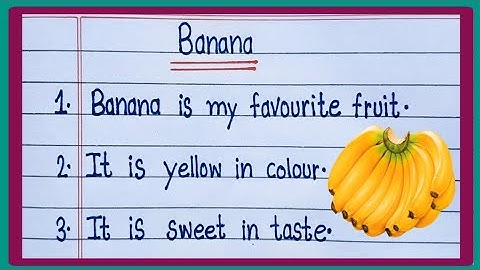 Banana
1. Banana is my favourite fruit.
2. It is yellow in colour.
3. It is sweet in taste.